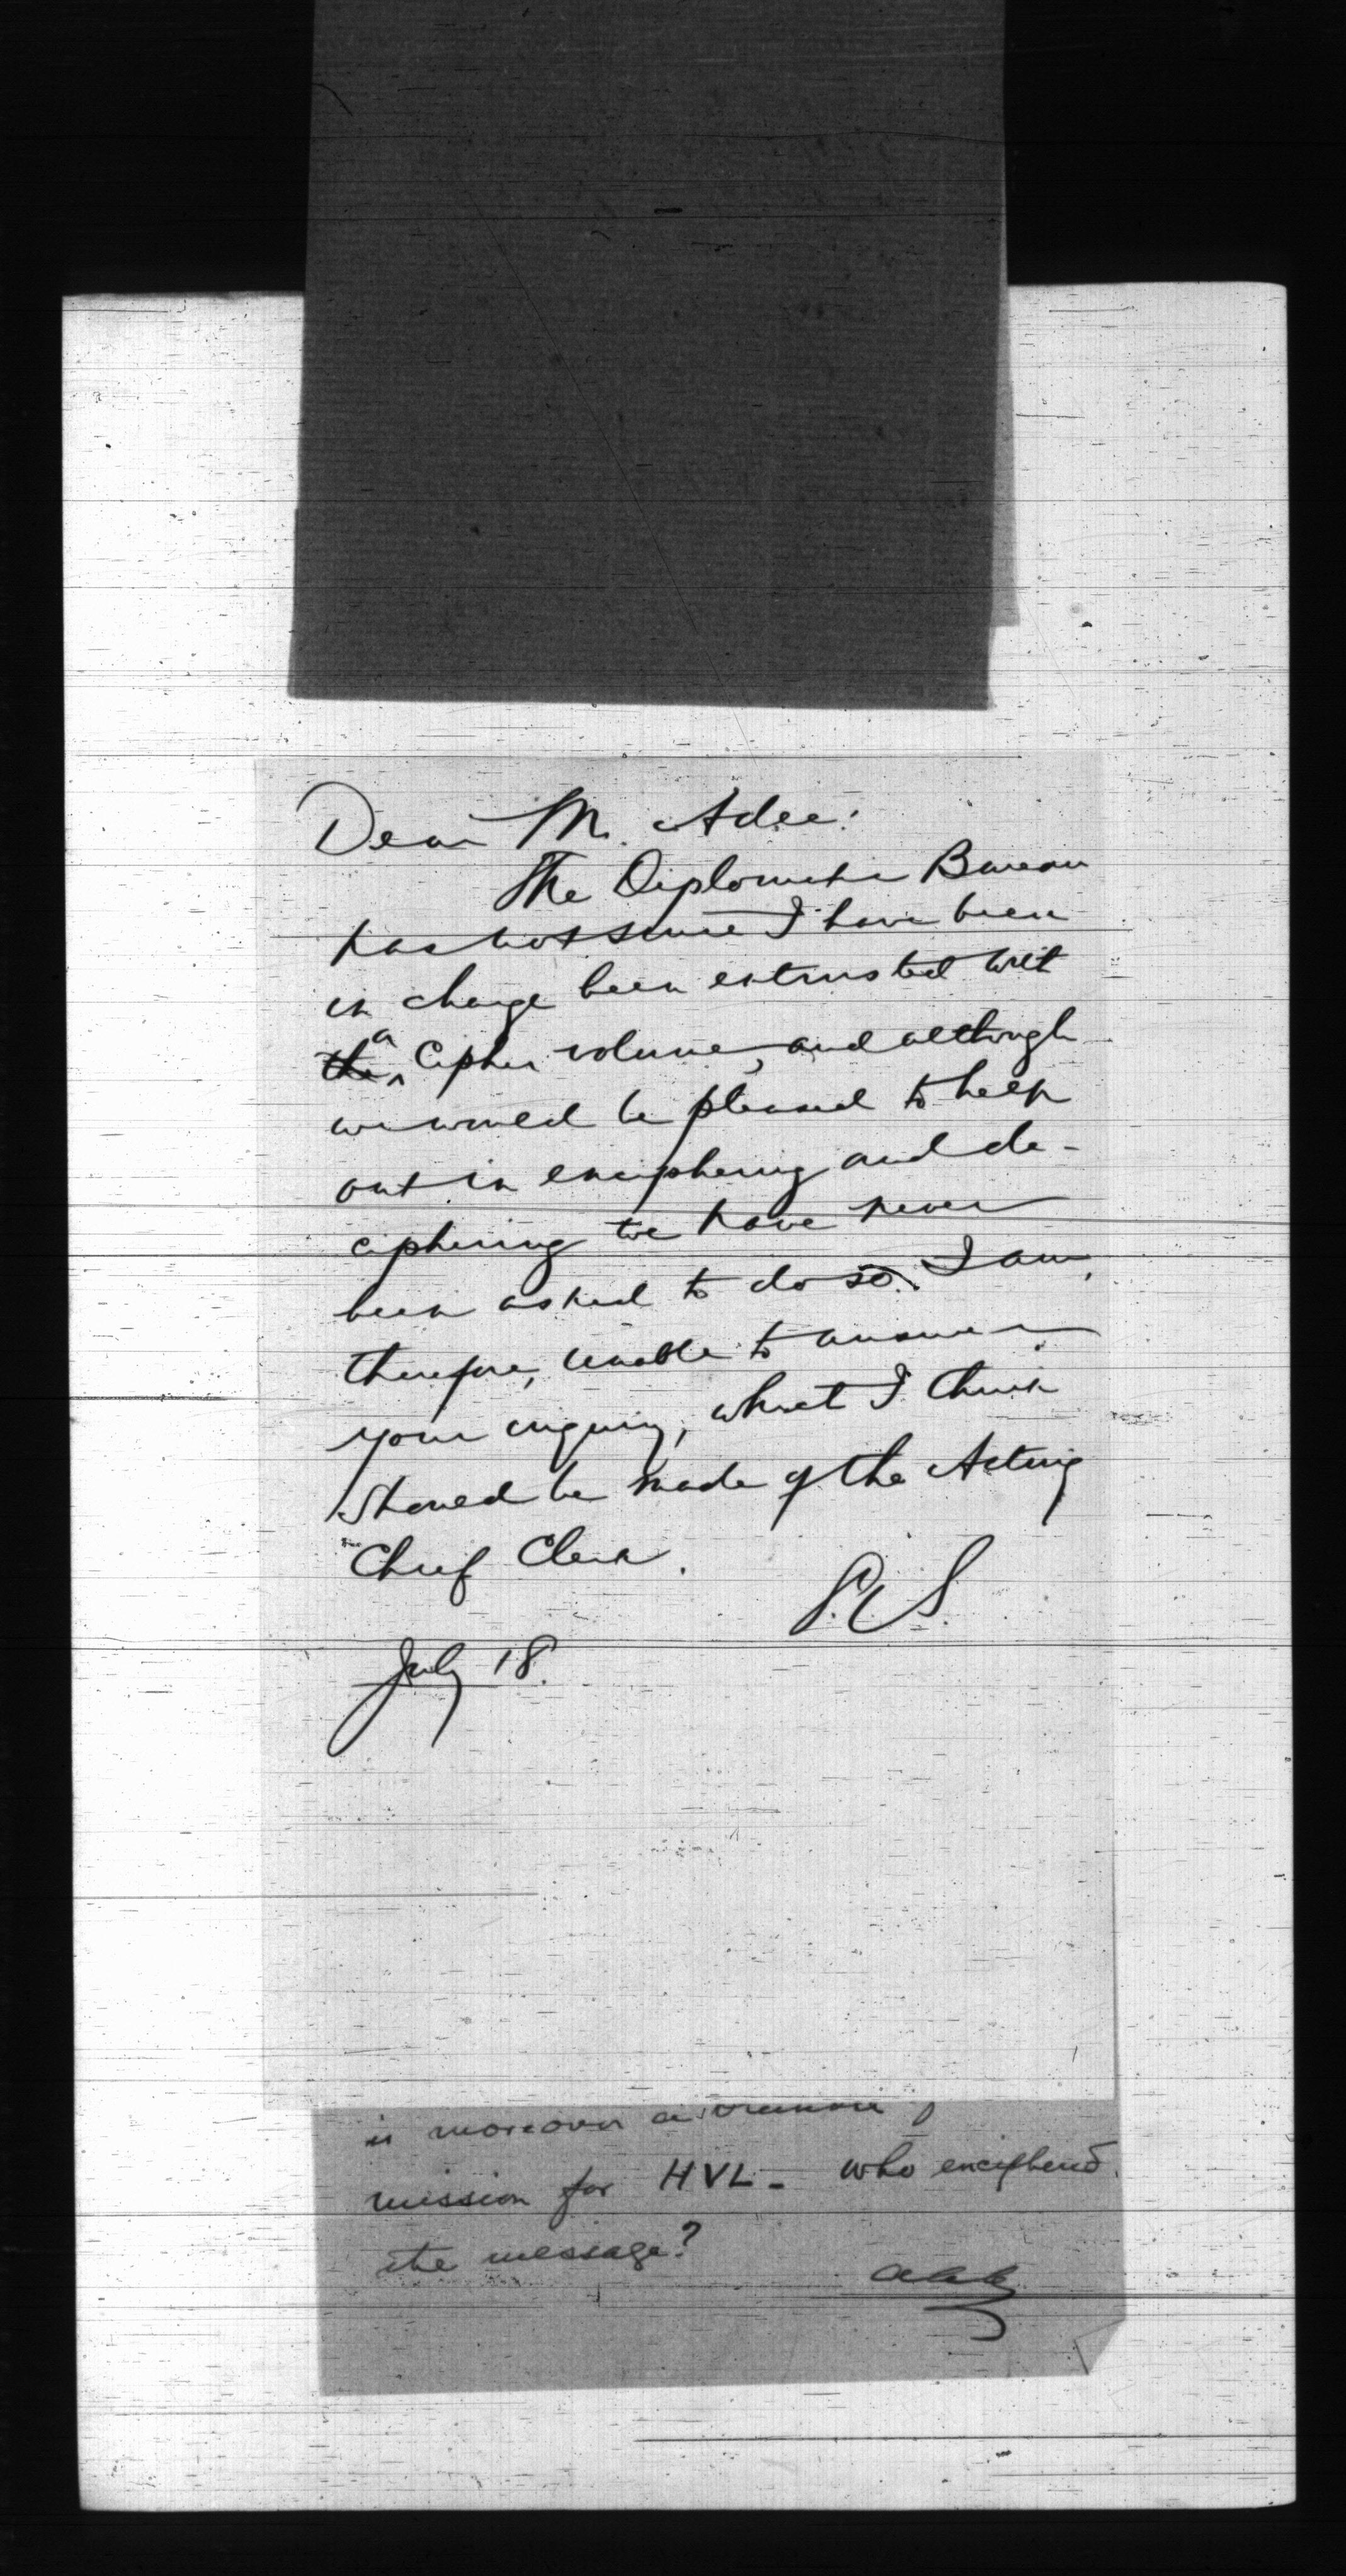 Dear Mr. Adee:
The Diplomatic Bureau
has not since I have been
in charge been entrusted with
the a Cipher volume, and although
we would be pleased to help
out in enciphering and de-
ciphering we have never
been asked to do so. I am,
therefore, unable to answer
your inquiry, what I think
should be made of the Acting
Chief Clerk.
July 18.
is moreover a
mission for HVL - who enciphered
the message?